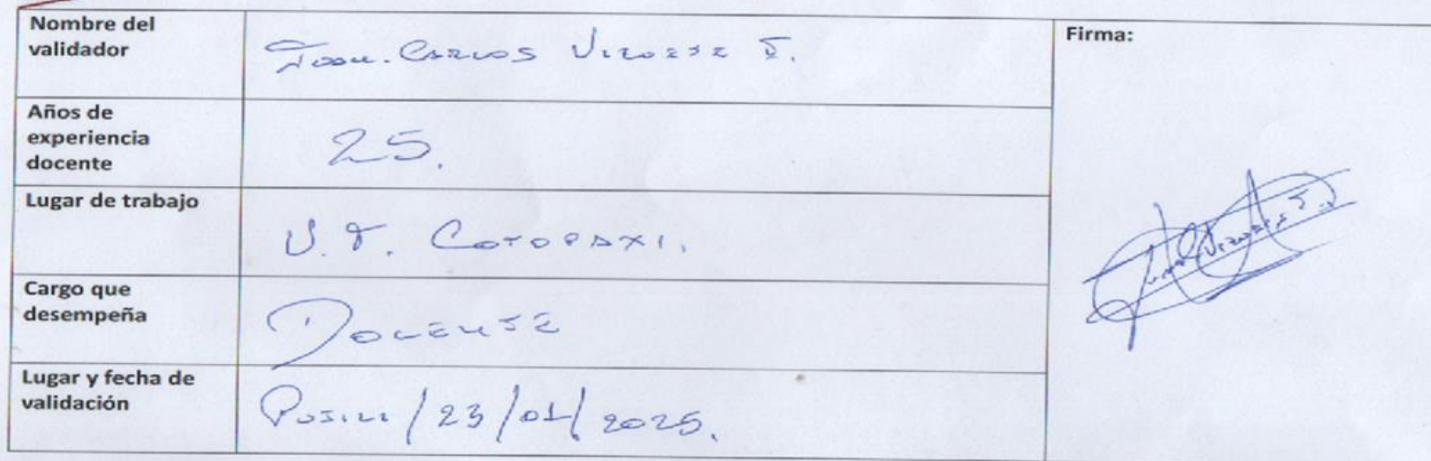 Nombre del
validador
Juan. Carlos Vizuete T.
Firma:
Años de
experiencia
docente
25.
Lugar de trabajo
U.T. COTOPAXI.
Cargo que
desempeña
DOCENTE
Lugar y fecha de
validación
/23/01/2025.